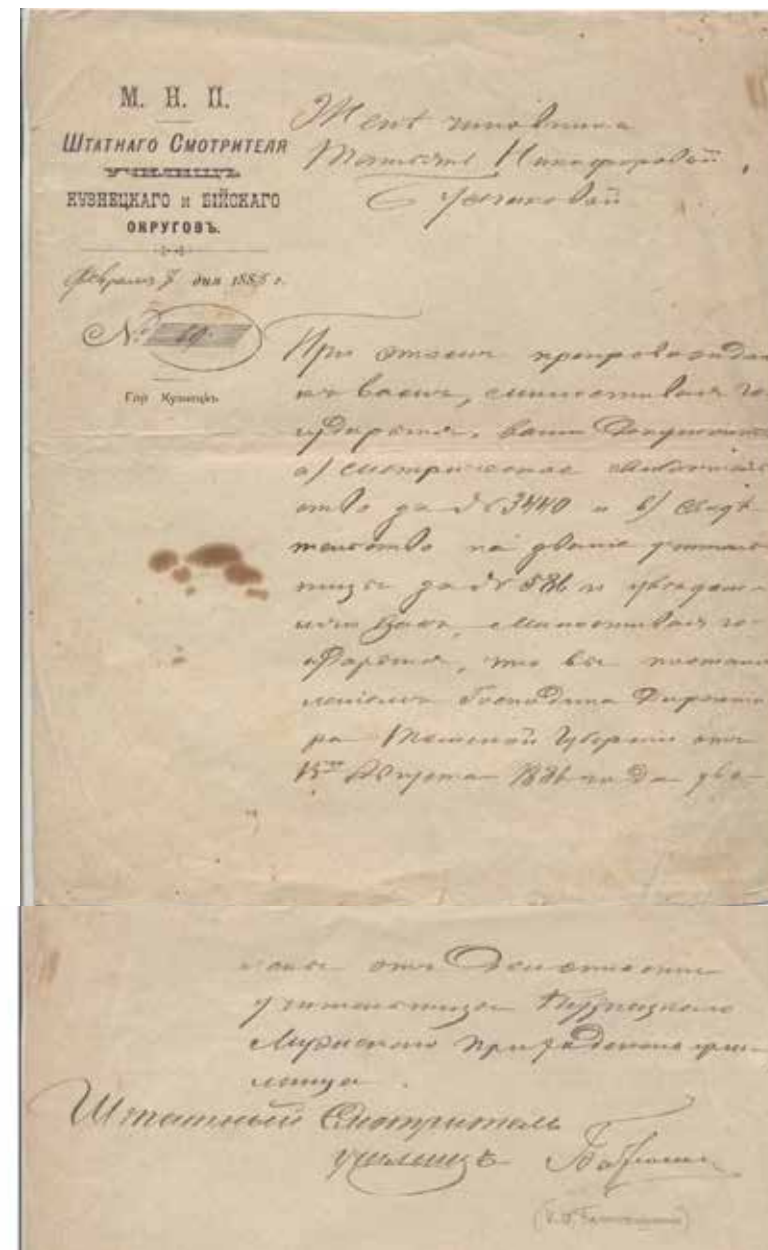 М. Н. П.
ШТАТНАГО СМОТРИТЕЛЯ
УЧИЛИЩЪ
КУЗНЕЦКАГО и БІЙСКАГО
ОКРУГОВЪ.
Февраля 7 дня 188 г.
№ 69.
Гор. Кузнецкъ
Женѣ чиновника
Татьянѣ Никифоровой
При этомъ препровождаю
къ вамъ, милостивая го-
ударыня, ваши документы
а)
ство за № 3440 и б) свидѣ
тельство на званіе учитель
ницы за № 586 и увѣдом-
Васъ, милостивая го-
ударыня, что вы постано
леніемъ Господина Директо
ра Томской Губерніи отъ
Августа года уво-
лены отъ должности
учительницы Кузнецкаго
Мужскаго Приходскаго учи-
лища.
Штатный Смотритель
училищъ